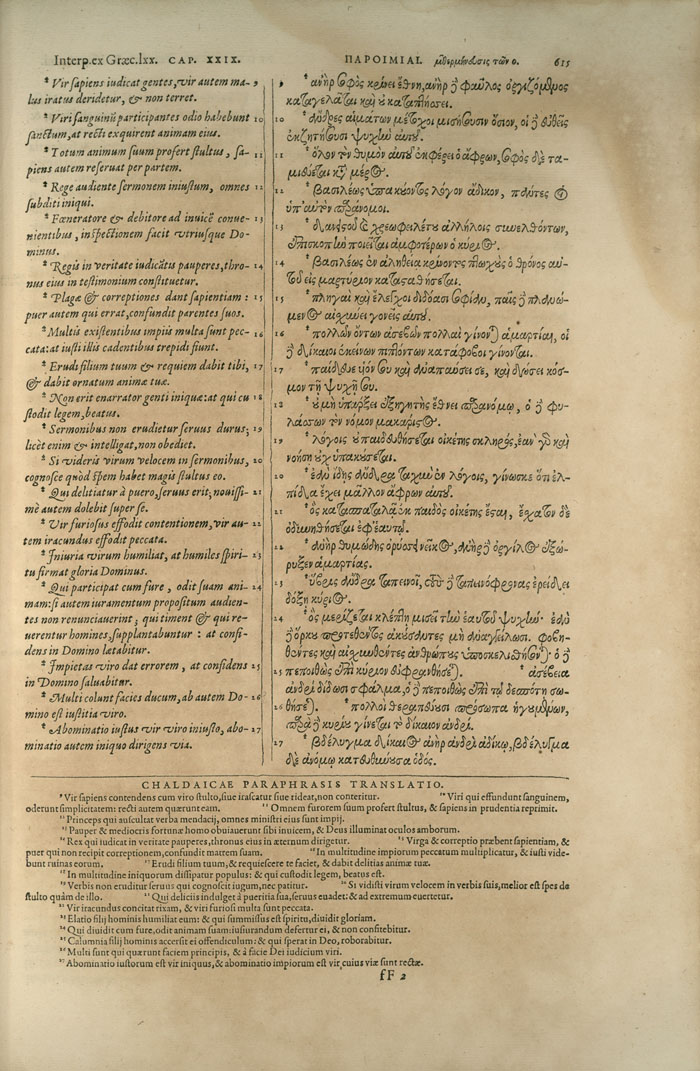 Interp. ex Græc. lxx. CAP. XXIX.
* Vir sapiens iudicat gentes, vir autem ma- 9
lus iratus deridetur, & non terret.
* Viri sanguinū participantes odio habebunt 10
sanctum, at recti exquirent animam eius.
* Totum animum suum profert stultus, sa- 11
piens autem reseruat per partem.
* Rege audiente sermonem iniustum, omnes 12
subditi iniqui.
* Fœneratore & debitore ad inuicē conue- 13
nientibus, inspectionem facit vtriusque Do-
minus.
* Regis in veritate iudicātis pauperes, thro- 14
nus eius in testimonium constituetur.
* Plagæ & correptiones dant sapientiam : 15
puer autem qui errat, confundit parentes suos.
* Multis existentibus impiis multa sunt pec- 16
cata: at iusti illis cadentibus trepidi fiunt.
* Erudi filium tuum & requiem dabit tibi, 17
& dabit ornatum animæ tuæ.
* Non erit enarrator genti iniquæ: at qui cu 18
stodit legem, beatus.
* Sermonibus non erudietur seruus durus; 19
licèt enim & intelligat, non obediet.
* Si videris virum velocem in sermonibus, 20
cognosce quòd spem habet magis stultus eo.
* Qui delitiatur à puero, seruus erit; nouissi- 21
mè autem dolebit super se.
* Vir furiosus effodit contentionem, vir au- 22
tem iracundus effodit peccata.
* Iniuria virum humiliat, at humiles spiri- 23
tu firmat gloria Dominus.
* Qui participat cum fure, odit suam ani- 24
mam: si autem iuramentum propositum audien-
tes non renunciauerint; qui timent & qui re-
uerentur homines, supplantabuntur : at confi-
dens in Domino lætabitur.
* Impietas viro dat errorem, at confidens 25
in Domino saluabitur.
* Multi colunt facies ducum, ab autem Do- 26
mino est iustitia viro.
* Abominatio iustus vir viro iniusto, abo- 27
minatio autem iniquo dirigens via.
ΠΑΡΟΙΜΙΑΙ μεθερμήνευσις τῶν ο. 615
9 * ἀνὴρ σοφὸς κρινεῖ ἔθνη, ἀνὴρ ϳ φαῦλος ὀργιζόμενος
καταγελᾶται καὶ οὐ καταπλήσσει.
10 * ἄνδρες αἱμάτων μέτοχοι μισήσουσιν ὅσιον, οἱ ϳ εὐθεῖς
ἐκζητήσουσι ψυχὴν αὐτοῦ.
11 * ὅλον τὸν θυμὸν αὐτοῦ ἐκφέρει ὁ ἄφρων, σοφὸς δὲ τα-
μιεύεται κατὰ μέρος.
12 * βασιλέως ὑπακούοντος λόγον ἄδικον, πάντες οἱ
ὑπ' αὐτὸν παράνομοι.
13 * δανειστοῦ καὶ χρεωφειλέτου ἀλλήλοις συνελθόντων,
ἐπισκοπὴν ποιεῖται ἀμφοτέρων ὁ κύριος.
14 * βασιλέως ἐν ἀληθείᾳ κρίνοντος πτωχοὺς ὁ θρόνος αὐ-
τοῦ εἰς μαρτύριον κατασταθήσεται.
15 * πληγαὶ καὶ ἔλεγχοι διδόασι σοφίαν, παῖς ϳ πλανώ-
μενος αἰσχύνει γονεῖς αὐτοῦ.
16 * πολλῶν ὄντων ἀσεβῶν πολλαὶ γίνονται ἁμαρτίαι, οἱ
ϳ δίκαιοι ἐκείνων πιπτόντων κατάφοβοι γίνονται.
17 * παίδευε υἱόν σου καὶ ἀναπαύσει σε, καὶ δώσει κόσ-
μον τῇ ψυχῇ σου.
18 * οὐ μὴ ὑπάρξει ἐξηγητὴς ἔθνει παρανόμῳ, ὁ ϳ φυ-
λάσσων τὸν νόμον μακάριος.
19 * λόγοις οὐ παιδευθήσεται οἰκέτης σκληρός, ἐὰν γὰρ καὶ
νοήσῃ οὐχ ὑπακούσεται.
20 * ἐὰν ἴδῃς ἄνδρα ταχὺν ἐν λόγοις, γίνωσκε ὅτι ἐλ-
πίδα ἔχει μᾶλλον ἄφρων αὐτοῦ.
21 * ὃς κατασπαταλᾷ ἐκ παιδὸς οἰκέτης ἔσται, ἔσχατον δὲ
ὀδυνηθήσεται ἐφ' ἑαυτῷ.
22 * ἀνὴρ θυμώδης ὀρύσσει νεῖκος, ἀνὴρ ϳ ὀργίλος ἐξώ-
ρυξεν ἁμαρτίας.
23 * ὕβρις ἄνδρα ταπεινοῖ, τοὺς ϳ ταπεινόφρονας ἐρείδει
δόξῃ κύριος.
24 * ὃς μερίζεται κλέπτῃ μισεῖ τὴν ἑαυτοῦ ψυχήν· ἐὰν
ϳ ὅρκου προτεθέντος ἀκούσαντες μὴ ἀναγγείλωσι. φοβη-
θέντες καὶ αἰσχυνθέντες ἀνθρώπους ὑποσκελισθήσονται· ὁ ϳ
25 πεποιθὼς ἐπὶ κύριον εὐφρανθήσεται. * ἀσέβεια
ἀνδρὶ δίδωσι σφάλμα, ὁ ϳ πεποιθὼς ἐπὶ τῷ δεσπότῃ σω-
26 θήσεται. * πολλοὶ θεραπεύουσι πρόσωπα ἡγουμένων,
παρὰ ϳ κυρίου γίνεται τὸ δίκαιον ἀνδρί.
27 * βδέλυγμα δίκαιος ἀνὴρ ἀνδρὶ ἀδίκῳ, βδέλυγμα
δὲ ἀνόμῳ κατευθύνουσα ὁδός.
CHALDAICAE PARAPHRASIS TRANSLATIO.
9 Vir sapiens contendens cum viro stulto, siue irascatur siue rideat, non conteritur. 10 Viri qui effundunt sanguinem,
oderunt simplicitatem: recti autem quærunt eam. 11 Omnem furorem suum profert stultus, & sapiens in prudentia reprimit.
12 Princeps qui auscultat verba mendacij, omnes ministri eius sunt impij.
13 Pauper & mediocris fortunæ homo obuiauerunt sibi inuicem, & Deus illuminat oculos amborum.
14 Rex qui iudicat in veritate pauperes, thronus eius in æternum dirigetur. 15 Virga & correptio præbent sapientiam, &
puer qui non recipit correptionem, confundit matrem suam. 16 In multitudine impiorum peccatum multiplicatur, & iusti vide-
bunt ruinas eorum. 17 Erudi filium tuum; & requiescere te faciet, & dabit delitias animæ tuæ.
18 In multitudine iniquorum dissipatur populus: & qui custodit legem, beatus est.
19 Verbis non eruditur seruus qui cognoscit iugum, nec patitur. 20 Si vidisti virum velocem in verbis suis, melior est spes de
stulto quàm de illo. 21 Qui deliciis indulget à pueritia sua, seruus euadet: & ad extremum euertetur.
22 Vir iracundus concitat rixam, & viri furiosi multa sunt peccata.
23 Elatio filij hominis humiliat eum: & qui summissus est spiritu, diuidit gloriam.
24 Qui diuidit cum fure, odit animam suam: iusiurandum defertur ei, & non confitebitur.
25 Calumnia filij hominis accersit ei offendiculum: & qui sperat in Deo, roborabitur.
26 Multi sunt qui quærunt faciem principis, & à facie Dei iudicium viri.
27 Abominatio iustorum est vir iniquus, & abominatio impiorum est vir cuius viæ sunt rectæ.
fF 2